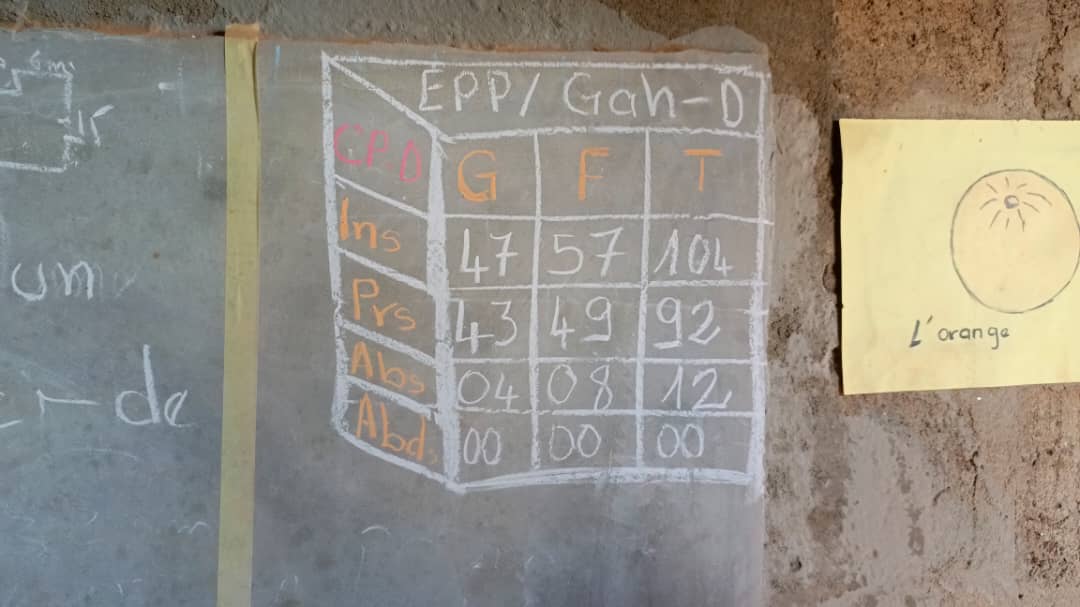 6m
15
um
de
EPP/ Gah-D
CP.D G F T
Ins 47 57 104
Prs 43 49 92
Abs 04 08 12
Abd 00 00 00
L'orange